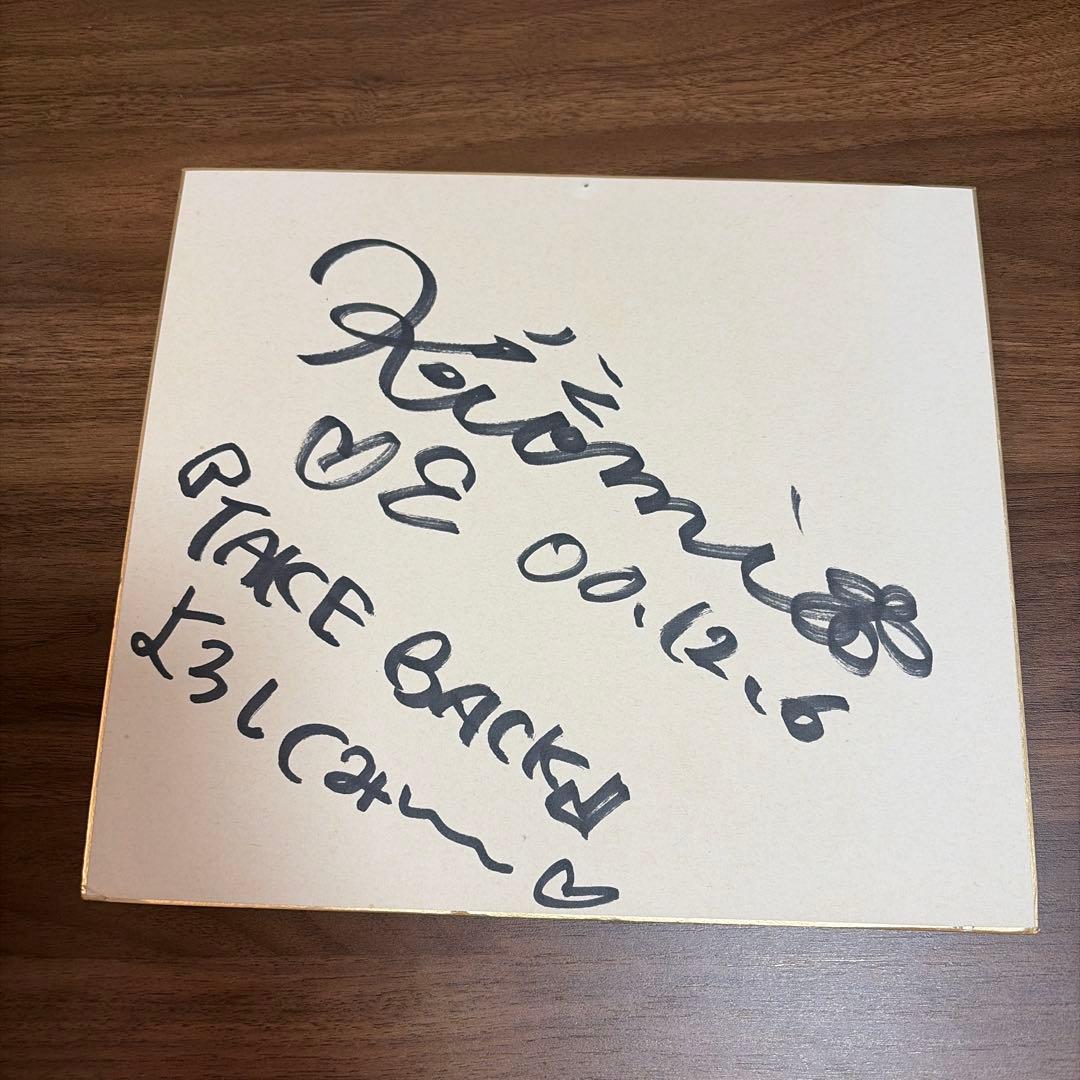 ♡E 00.12.6
『TAKE BACK』
よろしくみ〜♡